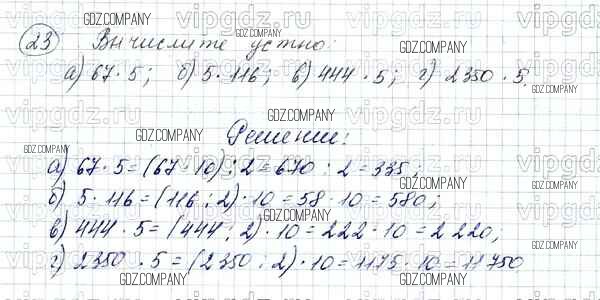 23 Вычислите устно:
а) 67 · 5; б) 5 · 116; в) 444 · 5; г) 2350 · 5.
Решение:
а) 67 · 5 = (67 · 10) : 2 = 670 : 2 = 335;
б) 5 · 116 = (116 : 2) · 10 = 58 · 10 = 580;
в) 444 · 5 = (444 : 2) · 10 = 222 · 10 = 2 220;
г) 2350 · 5 = (2350 : 2) · 10 = 1175 · 10 = 11750